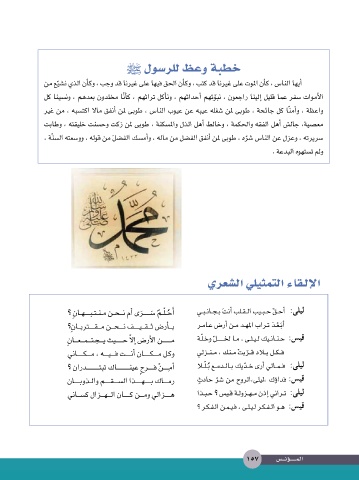 خطبة وعظ للرسول ﷺ
أيها الناس ، كأن الموت على غيرنا قد كتب ، وكأن الحق فيها على غيرنا قد وجب ، وكأن الذي نشيّع من
الأموات سفر عما قليل إلينا راجعون ، نبوّئهم أجداثهم ، ونأكل تراثهم ، كأنّا مخلدون بعدهم ، ونسينا كل
واعظة ، وأمنّا كل جائحة . طوبى لمن شغله عيبه عن عيوب الناس ، طوبى لمن أنفق مالا اكتسبه ، من غير
معصية، جالس أهل الفقه والحكمة ، وخالط أهل الذل والمسكنة ، طوبى لمن زكت وحسنت خليقته ، وطابت
سريرته ، وعزل عن الناس شرّه ، طوبى لمن أنفق الفضل من ماله ، وأمسك الفضلَ من قوله ، ووسعته السنّة ،
ولم تستهوه البدعة .
محمد
الإلقاء التمثيلي الشعري
ليلى: أحقّ حبيب القلب أنت بجانبي أحُلْمٌ سرى أم نحن منتبهانِ ؟
أبَعْدَ تراب المهد من أرض عامر بأرض ثقيف نحن مقتربانِ؟
قيس: حنانيك ليلى ، ما لخلّ وخلّة من الأرض إلاّ حيث يجتمعانِ
فكل بلاد قرّبتْ منك ، منزلي وكل مكان أنت فيه ، مكاني
ليلى: فمالي أرى خدّيك بالدمع بُلّلا أمِنْ فرح عيناك تبتدران ؟
قيس: فداؤك ،ليلى،الروح من شرّ حادثٍ رماك بهذا السقم والذوبان
ليلى: تراني إذن مهزولة قيس ؟ حبذا هزالي ومن كان الهزال كساني
قيس: هو الفكر ليلى ، فيمن الفكر ؟
المؤنس ١٥٧